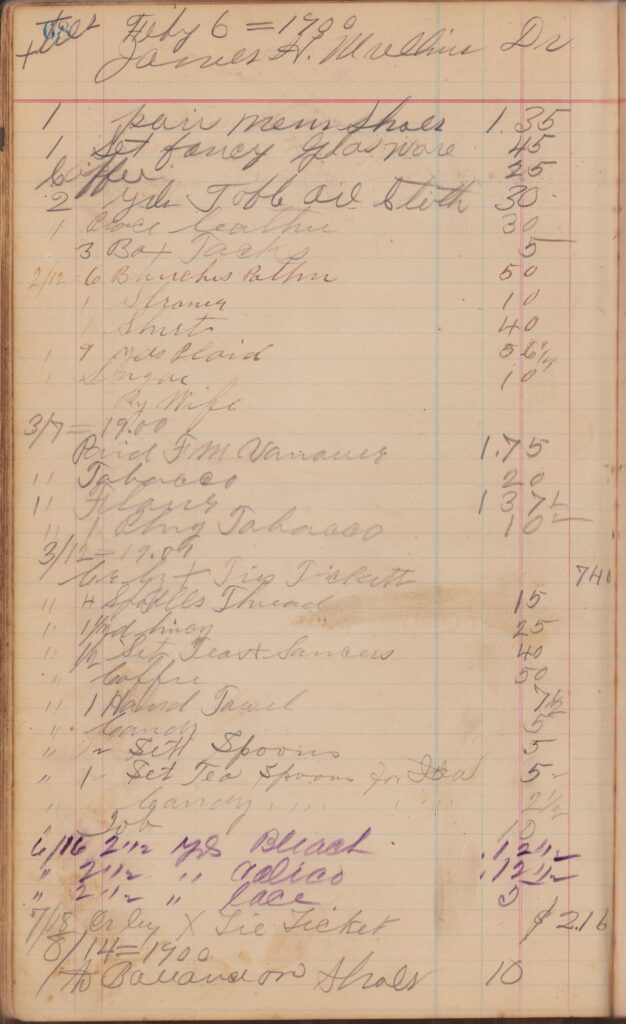 68
Feby 6 = 1900
James H. Mullins Dr
1 pair mens Shoes 1.35
1 Set fancy Glasware 45
Coffee 25
2 yds Tobl Oil Cloth 30
1 leather 30
3 Box Tacks 5
2/12 = 6 Bunches 50
" 1 Straner 10
" 1 Shirt 40
" 9 yds Plaid 56 1/4
" Sugar 10
By Wife
3/7 = 19.00
Paid F M Vanover 1.75
" Tabacco 20
" Flour 1 37 1/2
" 1 Plug Tabacco 10
3/12 = 19.00
By X Ties Tickett 740
" 4 Spolls Thread 15
" 1 1/2 yd 25
" 1/2 Set Teas & Sancers 40
" Coffee 50
" 1 Hand Tawel 7 1/2
" Candy 5
" Sett Spoons 5
" 1 Set Tea Spoons for 5
" Candy " " " " 2 1/2
" Job 10
6/16 2 1/2 yds Bleach .12 1/2
" 2 1/2 " Calico .12 1/2
" 2 1/2 " lace 5
7/18 Cr by X Tie Ticket $ 2.16
8/14 = 1900
to Ballance on Shoes 10